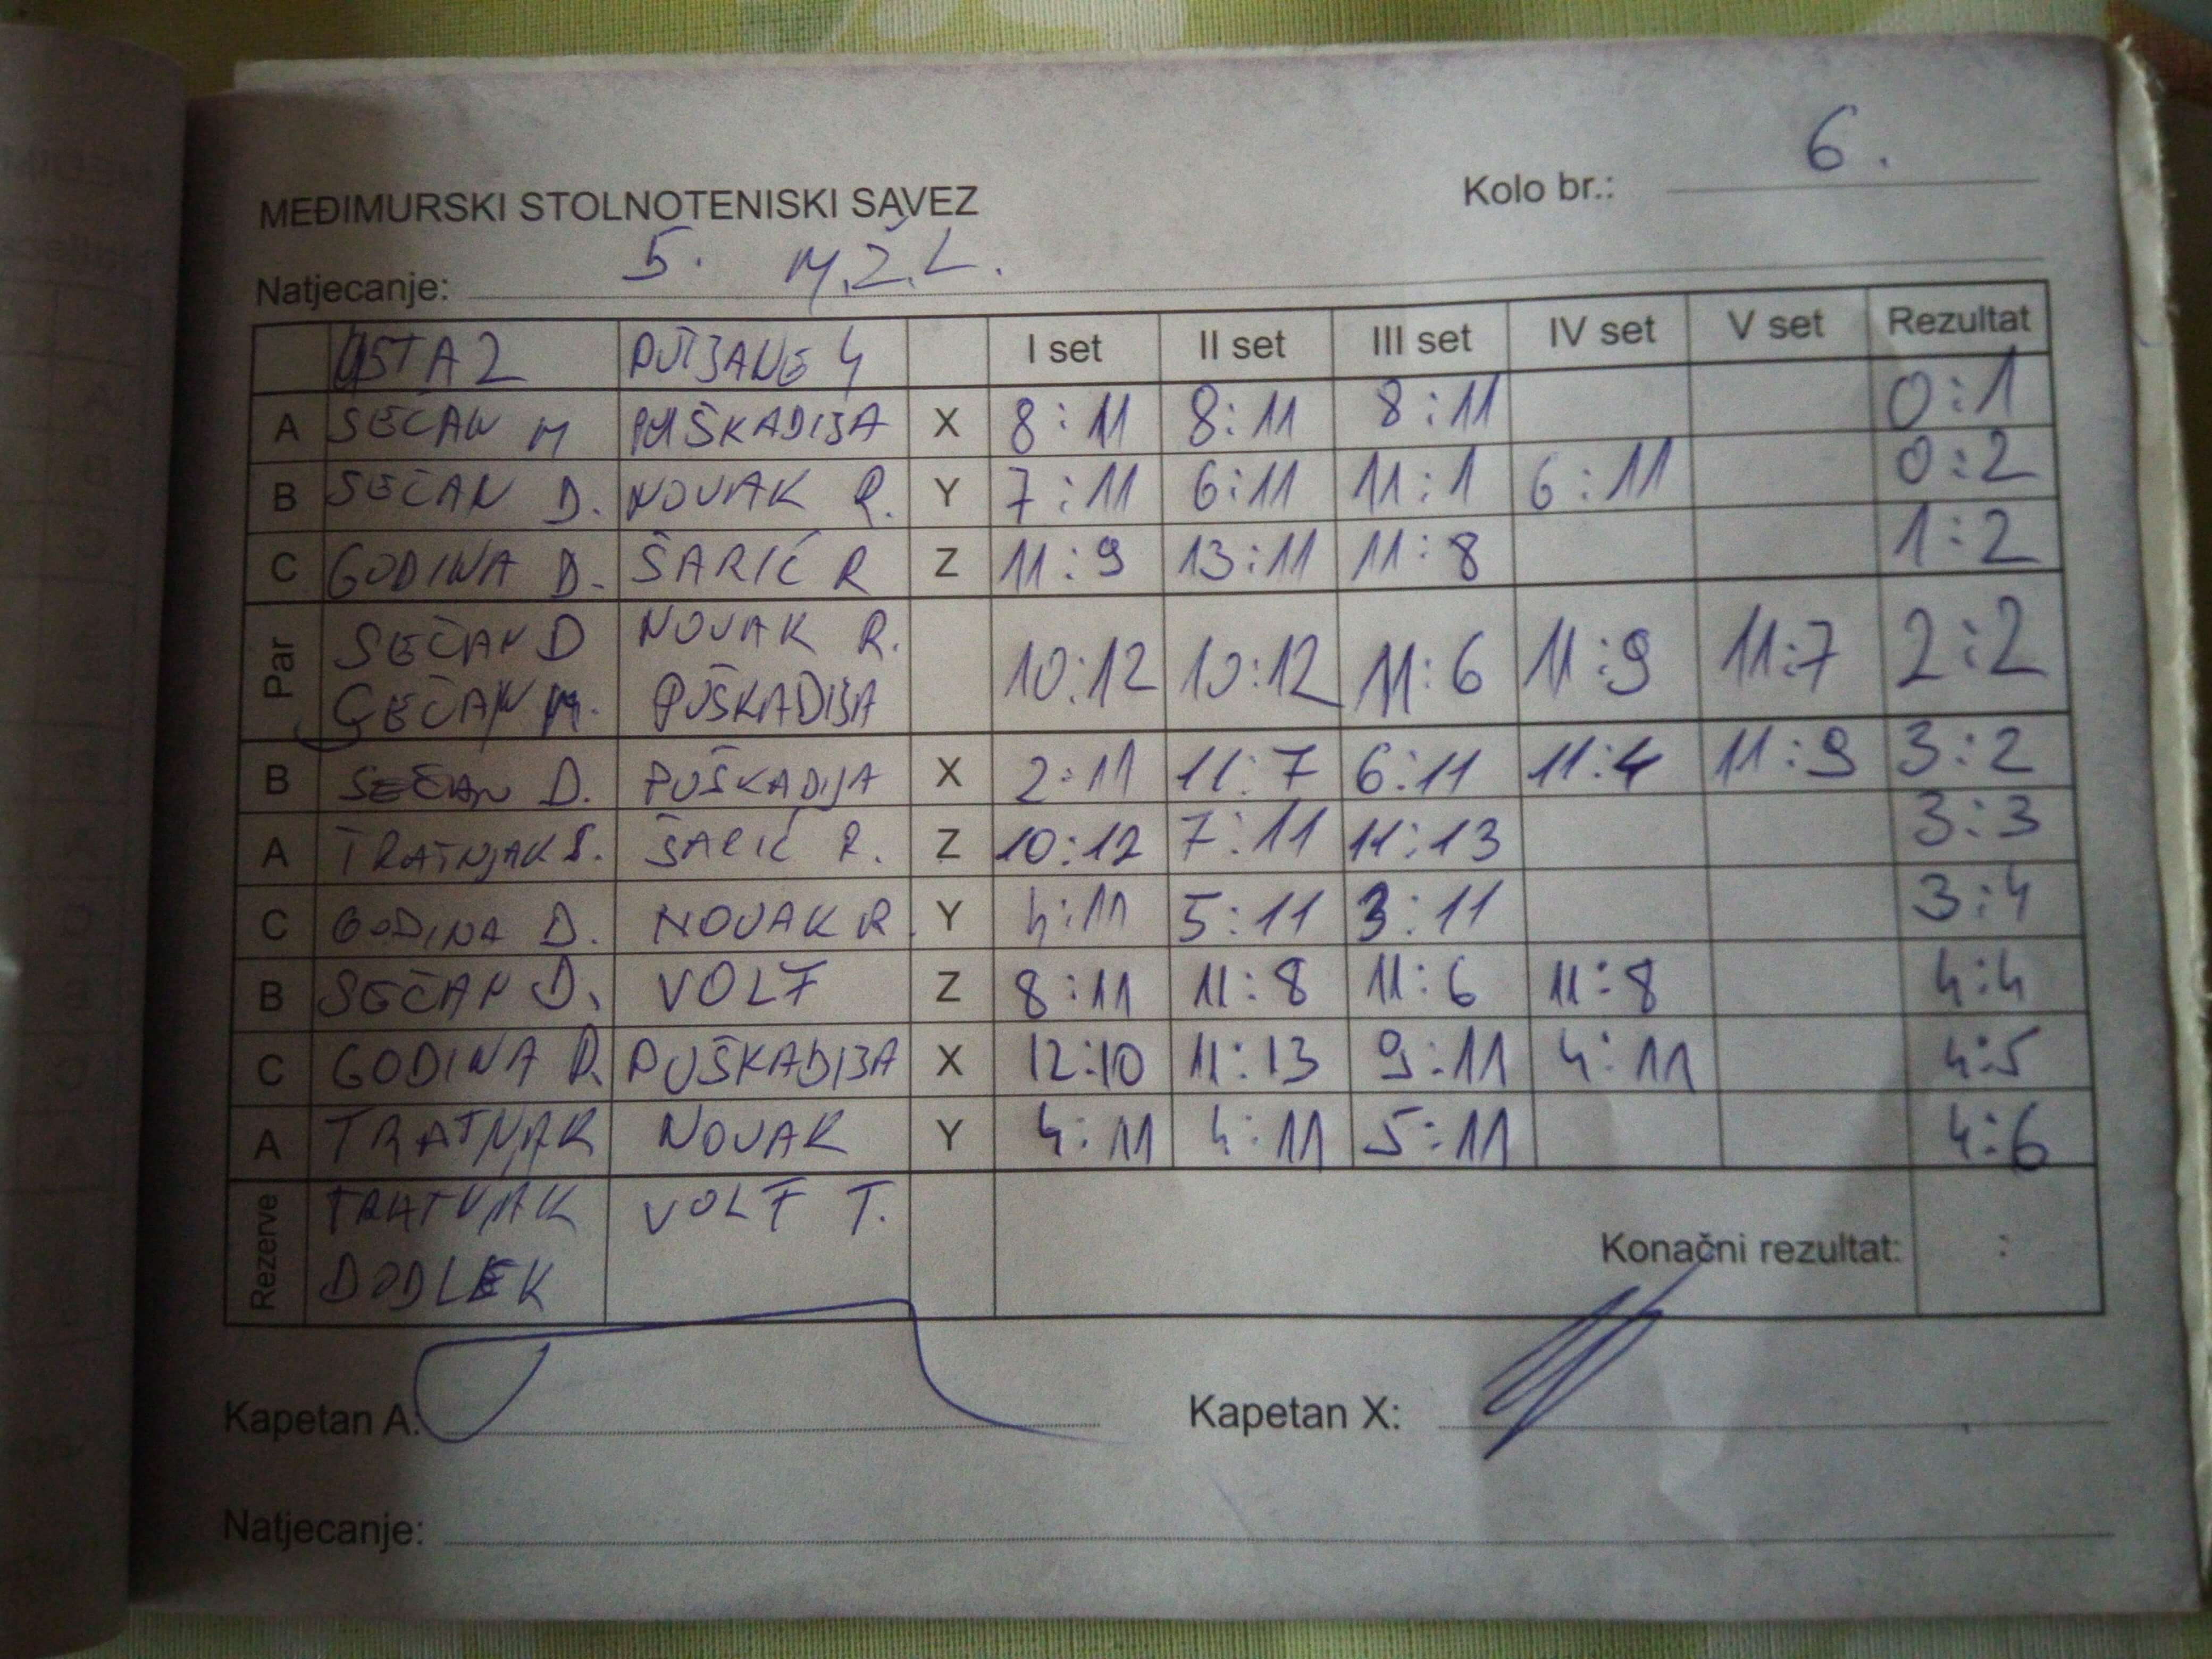 MEĐIMURSKI STOLNOTENISKI SAVEZ
Kolo br.: 6.
Natjecanje: 5. M.Ž.L.
USTA 2 PUŠĆANE 4 I set II set III set IV set V set Rezultat
A SEČAN M PUŠKADIJA X 8:11 8:11 8:11 0:1
B SEČAN D. NOVAK R. Y 7:11 6:11 11:1 6:11 0:2
C GODINA D. ŠARIĆ R Z 11:9 13:11 11:8 1:2
Par SEČAN D NOVAK R. 10:12 10:12 11:6 11:9 11:7 2:2
SEČAN M. PUŠKADIJA
B SEČAN D. PUŠKADIJA X 2:11 11:7 6:11 11:4 11:9 3:2
A TRATNJAK S. ŠARIĆ R. Z 10:12 7:11 11:13 3:3
C GODINA D. NOVAK R. Y 4:11 5:11 3:11 3:4
B SEČAN D. VOLF Z 8:11 11:8 11:6 11:8 4:4
C GODINA D. PUŠKADIJA X 12:10 11:13 9:11 4:11 4:5
A TRATNJAK NOVAK Y 4:11 4:11 5:11 4:6
Rezerve TRATNJAK VOLF T.
DODLEK
Konačni rezultat: :
Kapetan A: Kapetan X:
Natjecanje: